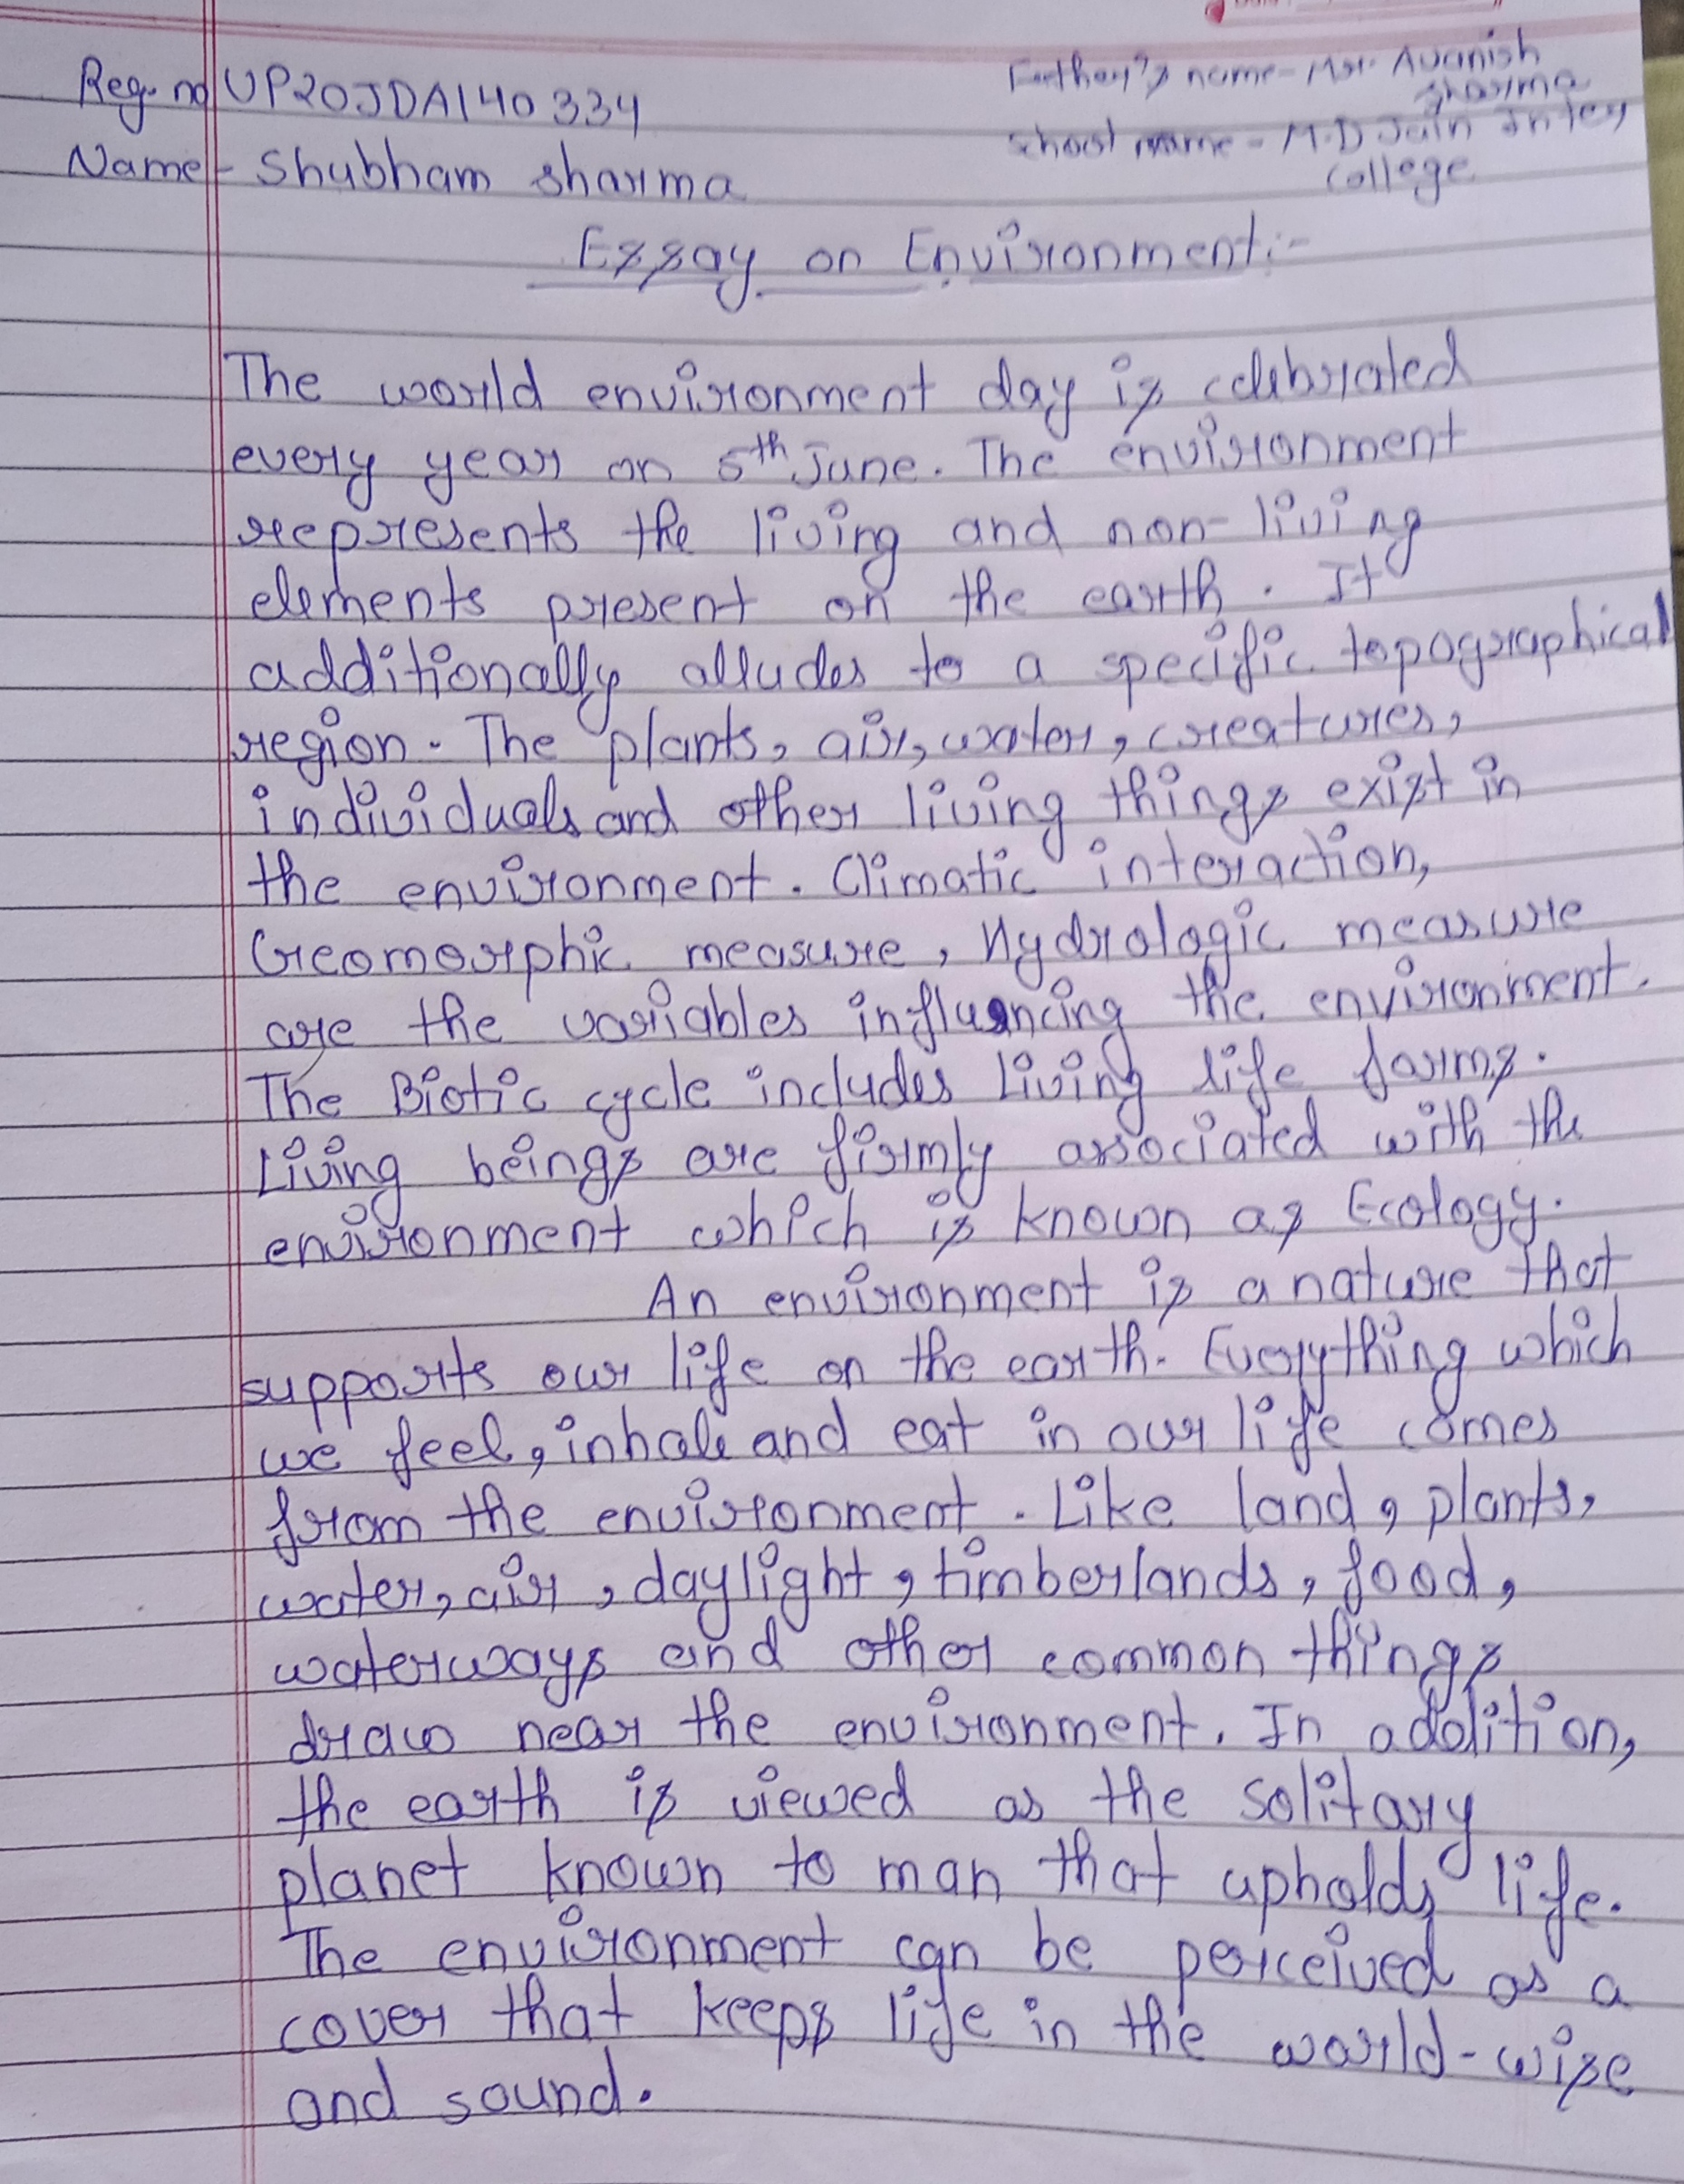 Reg. no UP20JDA140334
Name - Shubham sharma
Father's name - Mr. Avanish
sharma
school name - M.D Jain Inter
college
Essay on Environment:-
The world environment day is celebrated
every year on 5th June. The environment
represents the living and non-living
elements present on the earth. It
additionally alludes to a specific topographical
region. The plants, air, water, creatures,
individuals and other living things exist in
the environment. Climatic interaction,
Geomorphic measure, Hydrologic measure
are the variables influencing the environment.
The Biotic cycle includes Living life forms.
Living beings are firmly associated with the
environment which is known as Ecology.
An environment is a nature that
supports our life on the earth. Everything which
we feel, inhale and eat in our life comes
from the environment. Like land, plants,
water, air, daylight, timberlands, food,
waterways and other common things
draw near the environment. In addition,
the earth is viewed as the solitary
planet known to man that upholds life.
The environment can be perceived as a
cover that keeps life in the world-wise
and sound.